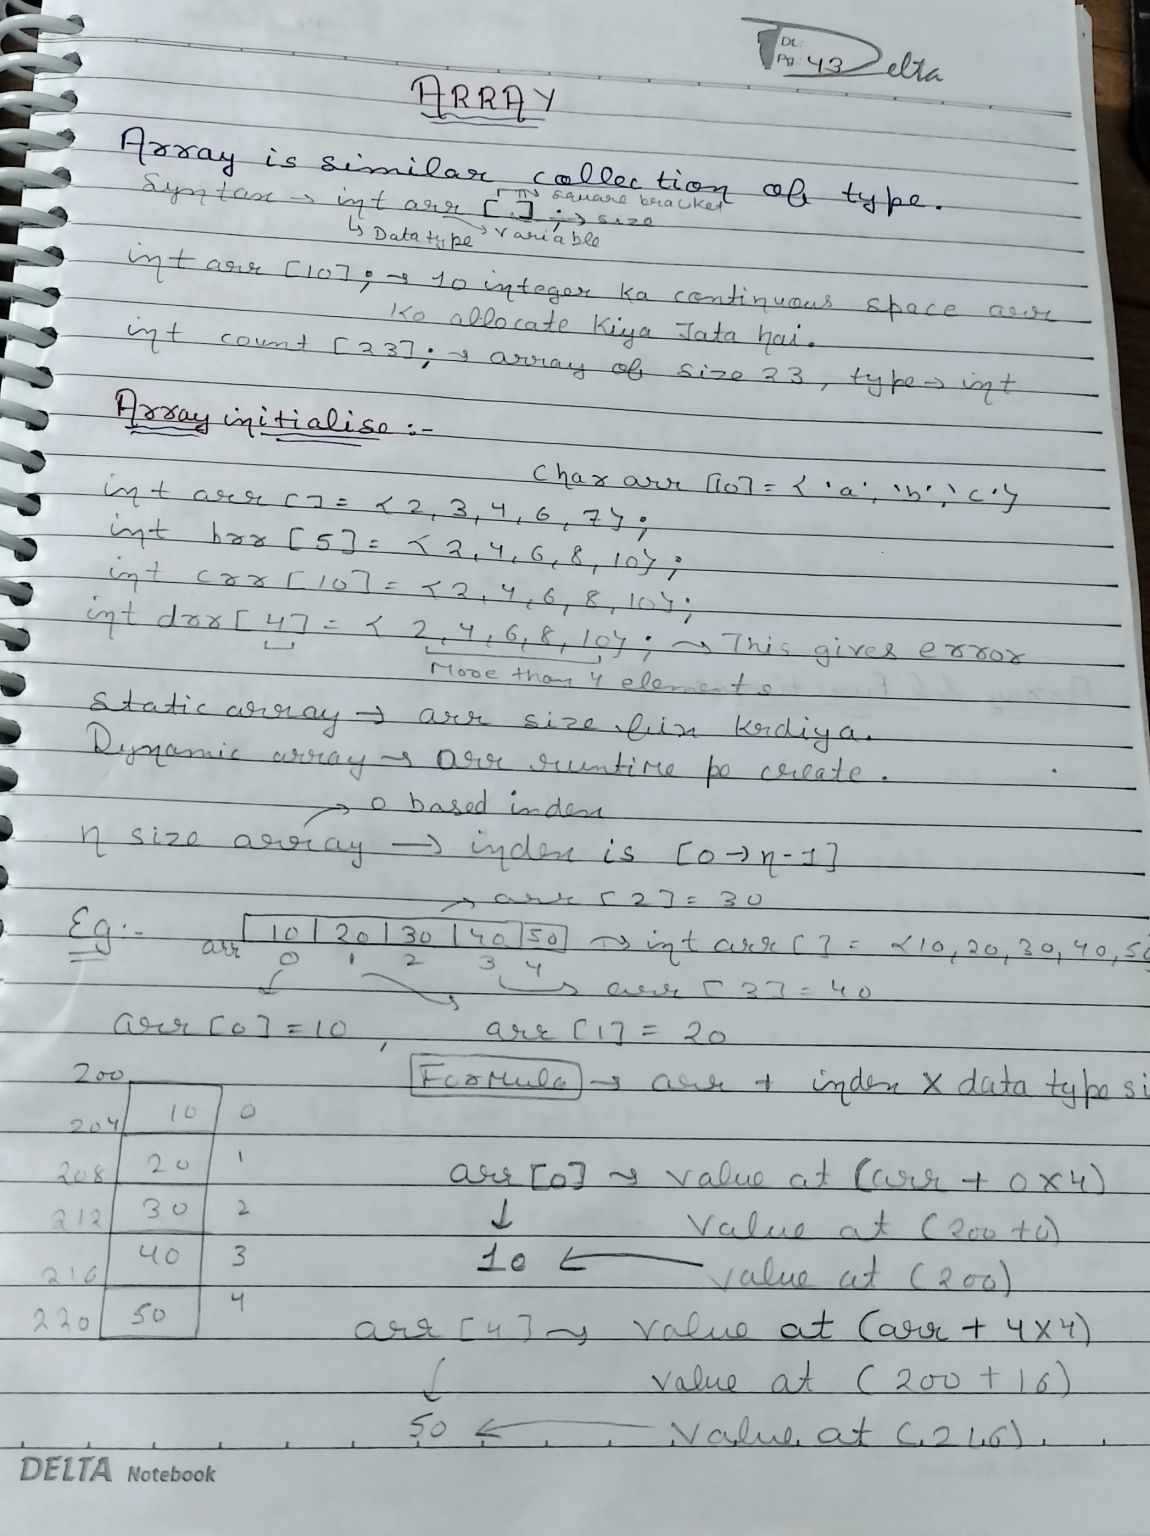 DL:
Pg: 43 Delta
ARRAY
Array is similar collection of type.
Syntax → int arr [ ] ; → square bracket
→ size
↳ Datatype variable
int arr [10] ; → 10 integer ka continuous space arr
ko allocate kiya Jata hai.
int count [23] ; → array of size 23, type → int
Array initialise :-
Char arr [10] = { 'a', 'b', 'c' }
int arr [ ] = { 2, 3, 4, 6, 7 } ;
int brr [5] = { 2, 4, 6, 8, 10 } ;
int crr [10] = { 2, 4, 6, 8, 10 } ;
int drr [4] = { 2, 4, 6, 8, 10 } ; → This gives error
More than 4 elements
Static array → arr size fix krdiya.
Dynamic array → arr runtime pe create.
→ 0 based index
n size array → index is [0 → n-1]
→ arr [2] = 30
Eg :- arr 10 | 20 | 30 | 40 | 50 → int arr [ ] = { 10, 20, 30, 40, 50
0 1 2 3 4
→ arr [3] = 40
arr [0] = 10 , arr [1] = 20
200 Formula → arr + index × data type si
204 10 0
208 20 1 arr [0] → value at (arr + 0×4)
212 30 2 ↓ Value at (200 + 0)
216 40 3 10 ← value at (200)
220 50 4 arr [4] → value at (arr + 4×4)
↓ value at (200 + 16)
50 ← Value at (216).
DELTA Notebook